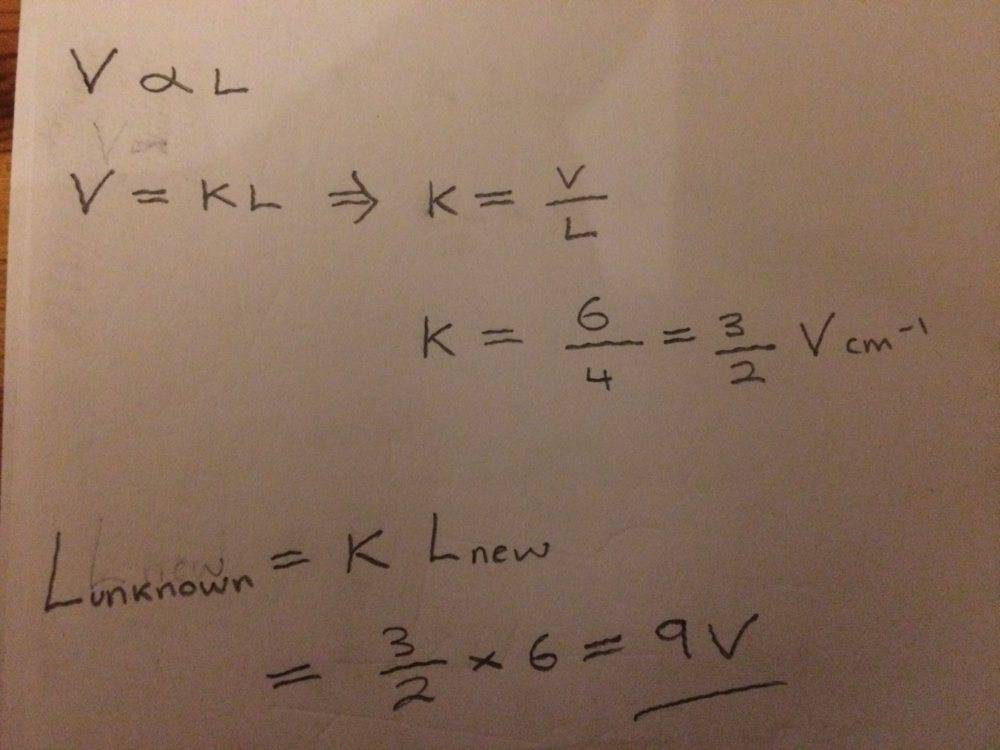 V ∝ L
V =
V = KL ⇒ K = V/L
K = 6/4 = 3/2 V cm⁻¹
Lunknown = K Lnew
= 3/2 × 6 = 9V